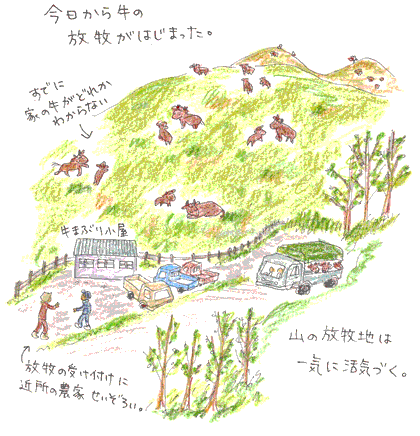 今日から牛の
放牧がはじまった。
すでに
家の牛がどれか
わからない
牛まぶり小屋
放牧の受け付けに
近所の農家 せいぞろい。
山の放牧地は
一気に活気づく。